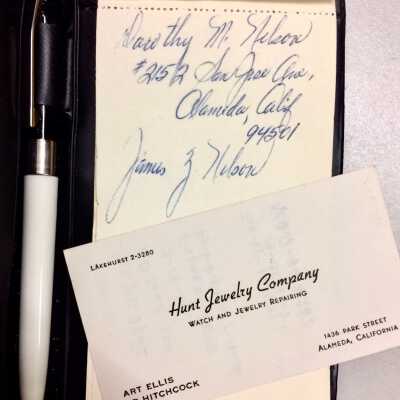 Dorothy M. Nelson
#2152 San Jose Ave,
Alameda, Calif
94501
James Z Nelson
LAKEHURST 2-3280
Hunt Jewelry Company
WATCH AND JEWELRY REPAIRING
1436 PARK STREET
ALAMEDA, CALIFORNIA
ART ELLIS
HITCHCOCK